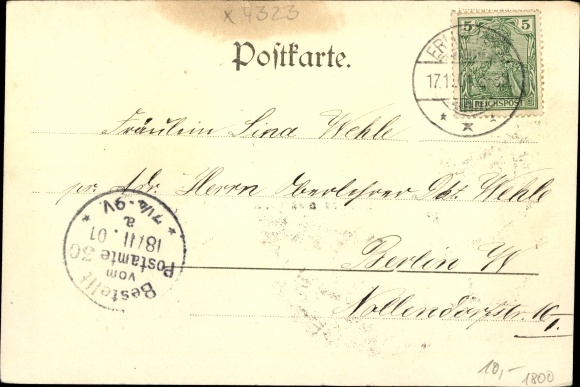 x 4323
Postkarte.
5 5
REICHSPOST
17.1
Fräulein Lina Wehle
pr. Adr. Herrn Oberlehrer Wehle
Berlin W
Nollendorfstr. 16
Bestellt
vom
Postamte 30
18/11.01
7¼-9V
10,- 1800